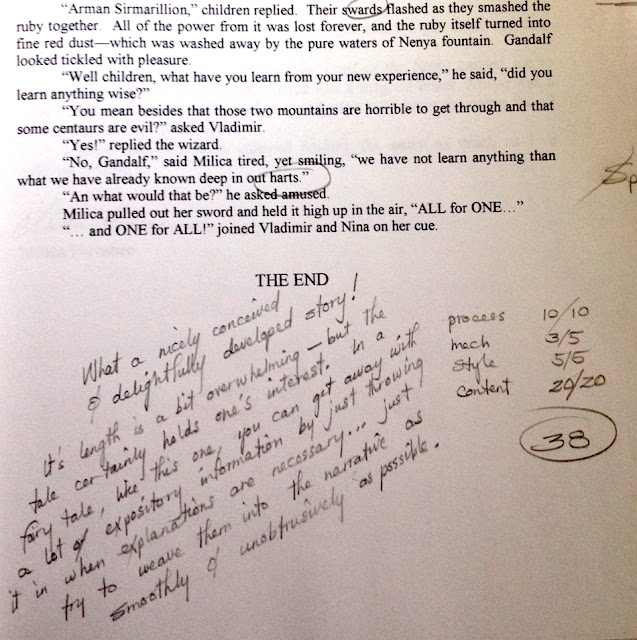 "Arman Sirmarillion," children replied. Their swards flashed as they smashed the
ruby together. All of the power from it was lost forever, and the ruby itself turned into
fine red dust—which was washed away by the pure waters of Nenya fountain. Gandalf
looked tickled with pleasure.
"Well children, what have you learn from your new experience," he said, "did you
learn anything wise?"
"You mean besides that those two mountains are horrible to get through and that
some centaurs are evil?" asked Vladimir.
"Yes!" replied the wizard.
"No, Gandalf," said Milica tired, yet smiling, "we have not learn anything than
what we have already known deep in out harts."
"An what would that be?" he asked amused.
Milica pulled out her sword and held it high up in the air, "ALL for ONE…"
"… and ONE for ALL!" joined Vladimir and Nina on her cue.
THE END
What a nicely conceived
& delightfully developed story!
It's length is a bit overwhelming – but the
tale certainly holds one's interest. In a
fairy tale, like this one, you can get away with
a lot of expository information by just throwing
it in when explanations are necessary... just
try to weave them into the narrative as
smoothly & unobtrusively as possible.
process 10/10
mech 3/5
style 5/5
content 20/20
38